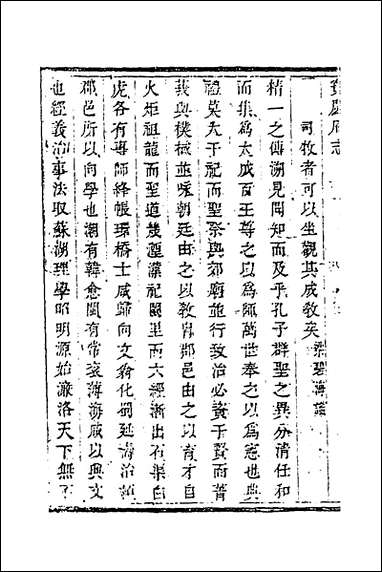 寶慶府志
司牧者可以坐觀其成敎矣
精一之傳溯見聞知而及乎孔子群聖之異分清任和
而集為大成百王尊之以為師萬世奉之以為憲也典
禮莫大于祀而聖祭與郊廟並行致治必資于賢而菁
莪與樸棫並咏朝廷由之以敎胄郡邑由之以育才自
火炬祖龍而聖道幾墜漢祀闕里而六經漸出石渠白
虎各有專師絳帳環橋士咸歸向文翁化蜀延壽治潁
郡邑所以向學也潮有韓愈閩有常袞薄海咸以興文
也經義治事法取蘇湖理學昭明源始濂洛天下無不